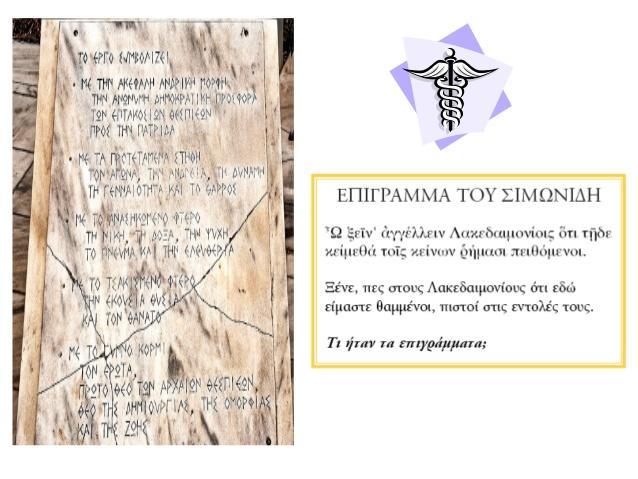 ΤΟ ΕΡΓΟ ΣΥΜΒΟΛΙΖΕΙ
• ΜΕ ΤΗΝ ΑΚΕΦΑΛΗ ΑΝΔΡΙΚΗ ΜΟΡΦΗ
ΤΗΝ ΑΝΩΝΥΜΗ ΔΗΜΟΚΡΑΤΙΚΗ ΠΡΟΣΦΟΡΑ
ΤΩΝ ΕΠΤΑΚΟΣΙΩΝ ΘΕΣΠΙΕΩΝ
ΠΡΟΣ ΤΗΝ ΠΑΤΡΙΔΑ
• ΜΕ ΤΑ ΠΡΟΤΕΤΑΜΕΝΑ ΣΤΗΘΗ
ΤΟΝ ΑΓΩΝΑ, ΤΗΝ ΑΝΔΡΕΙΑ, ΤΗ ΔΥΝΑΜΗ
ΤΗ ΓΕΝΝΑΙΟΤΗΤΑ ΚΑΙ ΤΟ ΘΑΡΡΟΣ
• ΜΕ ΤΟ ΑΝΑΣΗΚΩΜΕΝΟ ΦΤΕΡΟ
ΤΗ ΝΙΚΗ, ΤΗ ΔΟΞΑ, ΤΗΝ ΨΥΧΗ
ΤΟ ΠΝΕΥΜΑ ΚΑΙ ΤΗΝ ΕΛΕΥΘΕΡΙΑ
• ΜΕ ΤΟ ΤΣΑΚΙΣΜΕΝΟ ΦΤΕΡΟ
ΤΗΝ ΕΚΟΥΣΙΑ ΘΥΣΙΑ
ΚΑΙ ΤΟΝ ΘΑΝΑΤΟ
• ΜΕ ΤΟ ΓΥΜΝΟ ΚΟΡΜΙ
ΤΟΝ ΕΡΩΤΑ,
ΠΡΩΤΟ ΘΕΟ ΤΩΝ ΑΡΧΑΙΩΝ ΘΕΣΠΙΕΩΝ,
ΘΕΟ ΤΗΣ ΔΗΜΙΟΥΡΓΙΑΣ, ΤΗΣ ΟΜΟΡΦΙΑΣ
ΚΑΙ ΤΗΣ ΖΩΗΣ
ΕΠΙΓΡΑΜΜΑ ΤΟΥ ΣΙΜΩΝΙΔΗ
Ὦ ξεῖν' ἀγγέλλειν Λακεδαιμονίοις ὅτι τῇδε
κείμεθά τοῖς κείνων ῥήμασι πειθόμενοι.
Ξένε, πες στους Λακεδαιμονίους ότι εδώ
είμαστε θαμμένοι, πιστοί στις εντολές τους.
Τι ήταν τα επιγράμματα;